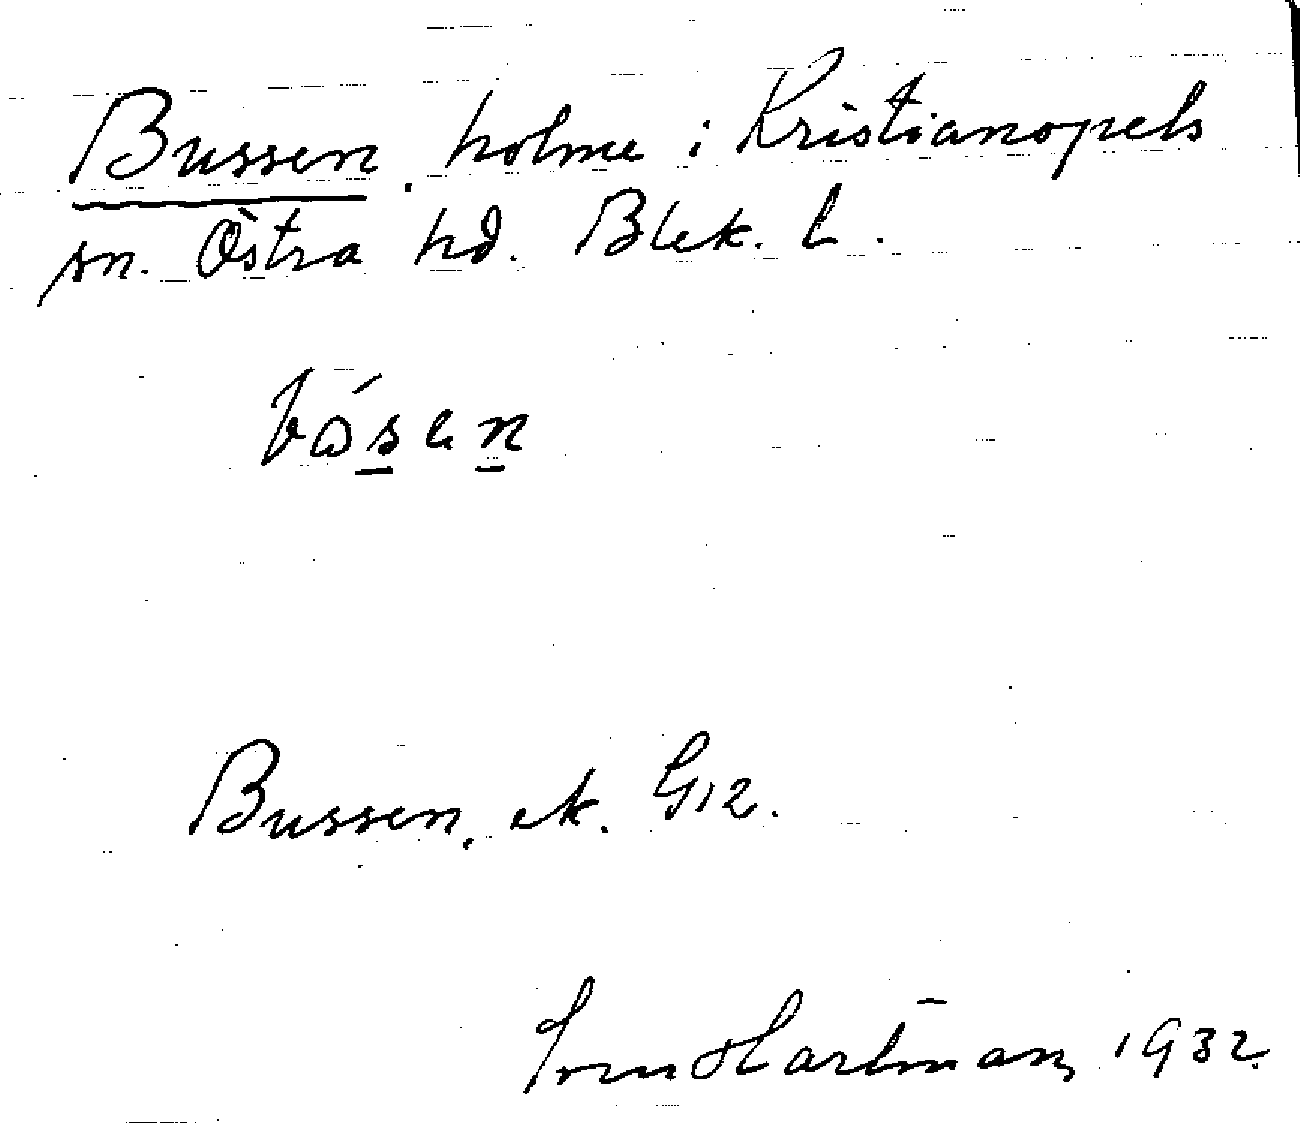 Bussen, holme i Kristianopels
sn. Östra hd. Blek. l.
bósen
Bussen, ek. G12.
Hartman 1932.